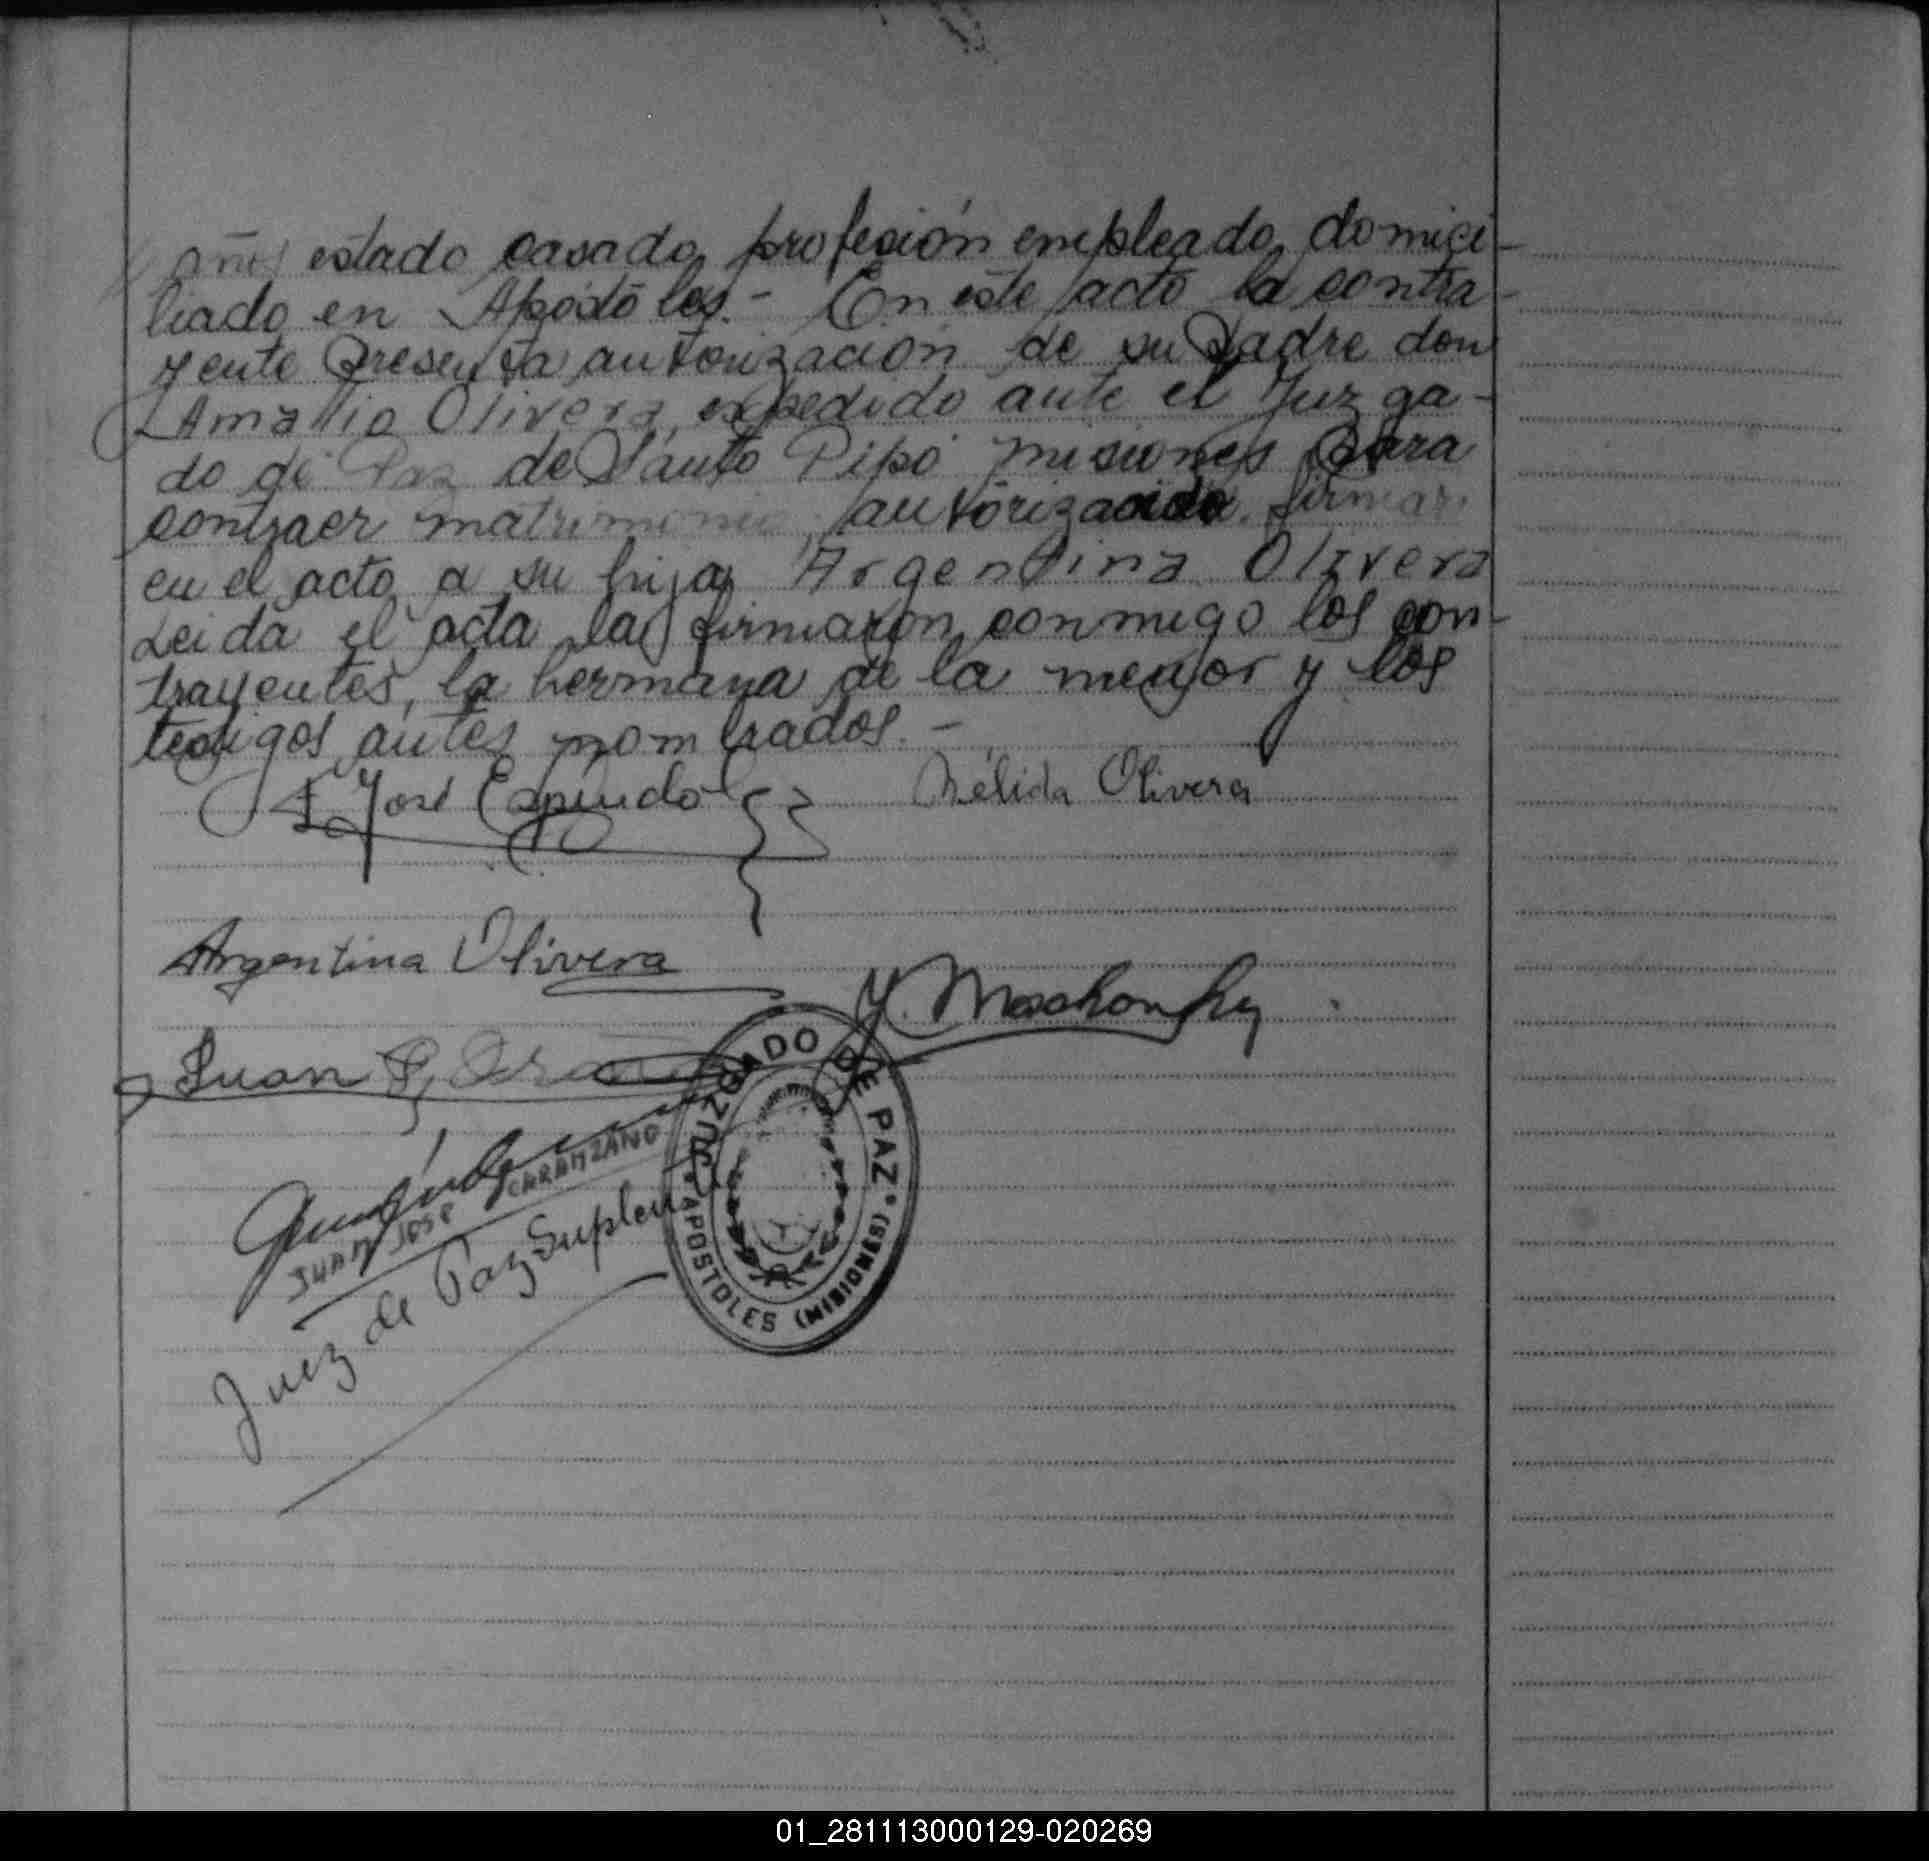 años estado casado, profesión empleado, domici-
liado en Apóstoles.- En este acto la contra-
yente presenta autorización de su padre don
Amalio Olivera, expedido ante el Juzga-
do de Paz de Santo Pipó misiones para
contraer matrimonio, autorizacido firmar
en el acto a su hija, Argentina Olivera
Leida el acta la firmaron conmigo los con-
trayentes, la hermana de la menor y los
testigos antes nombrados.-
José Espindola Nélida Olivera
Argentina Olivera
Juan P.
JUAN JOSE CARANZANO
Juez de Paz Suplente
JUZGADO DE PAZ
APOSTOLES (MISIONES)
01_281113000129-020269